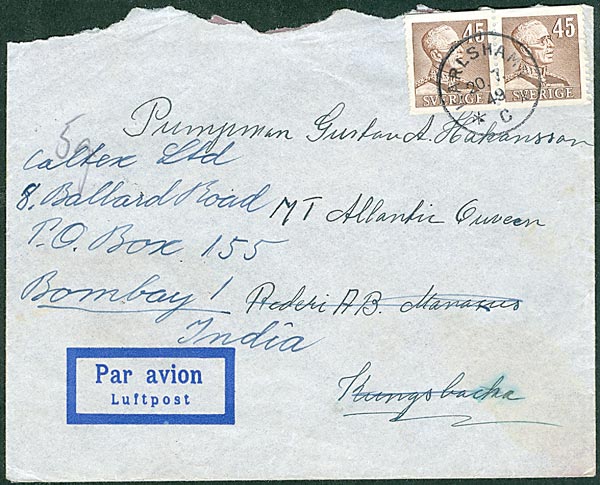 45 45
SVERIGE SVERIGE
KARLSHAMN
20.7.49
* C
5g
Pumpman Gustav A. Hakansson
Caltex Ltd
8. Ballard Road
MT Atlantic Quveen
P.O. Box 155
Bombay 1
Rederi AB. Manasus
India
Kungsbacka
Par avion
Luftpost